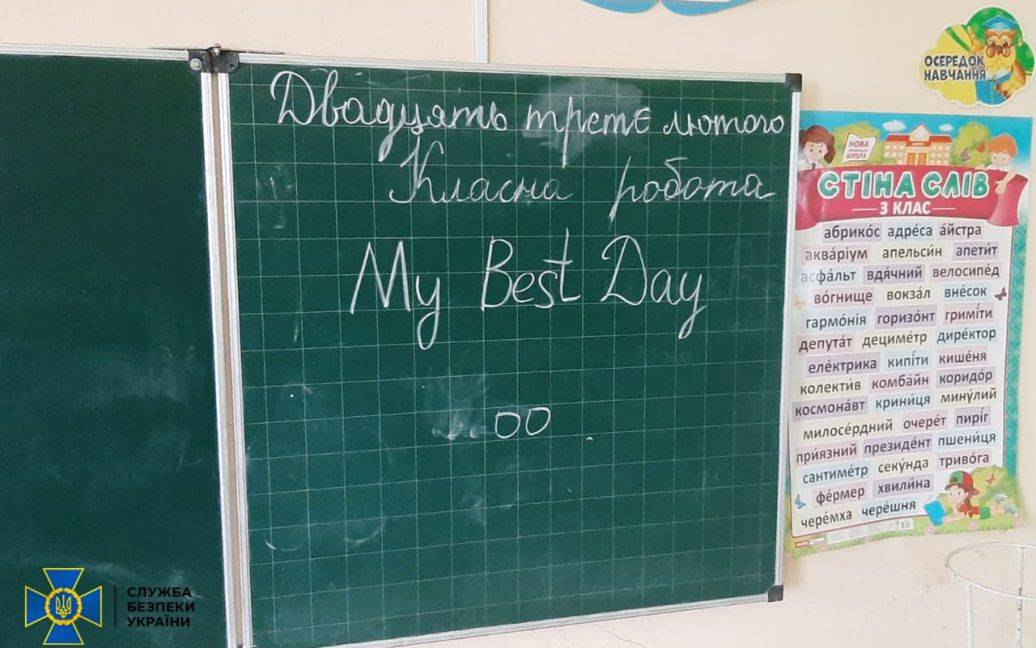 Двадцять третє лютого
Класна робота
My Best Day
оо
ОСЕРЕДОК
НАВЧАННЯ
НОВА
ШКОЛА
СТІНА СЛІВ
3 КЛАС
абрико́с адре́са а́йстра
аква́ріум апельси́н апети́т
асфа́льт вдя́чний велосипе́д
во́гнище вокза́л вне́сок
гармо́нія горизо́нт гримі́ти
депута́т дециме́тр дире́ктор
еле́ктрика кипі́ти кише́ня
колекти́в комба́йн коридо́р
космона́вт крини́ця мину́лий
милосе́рдний очере́т пирі́г
прия́зний президе́нт пшени́ця
сантиме́тр секу́нда триво́га
фе́рмер хвили́на
чере́мха чере́шня
СЛУЖБА
БЕЗПЕКИ
УКРАЇНИ